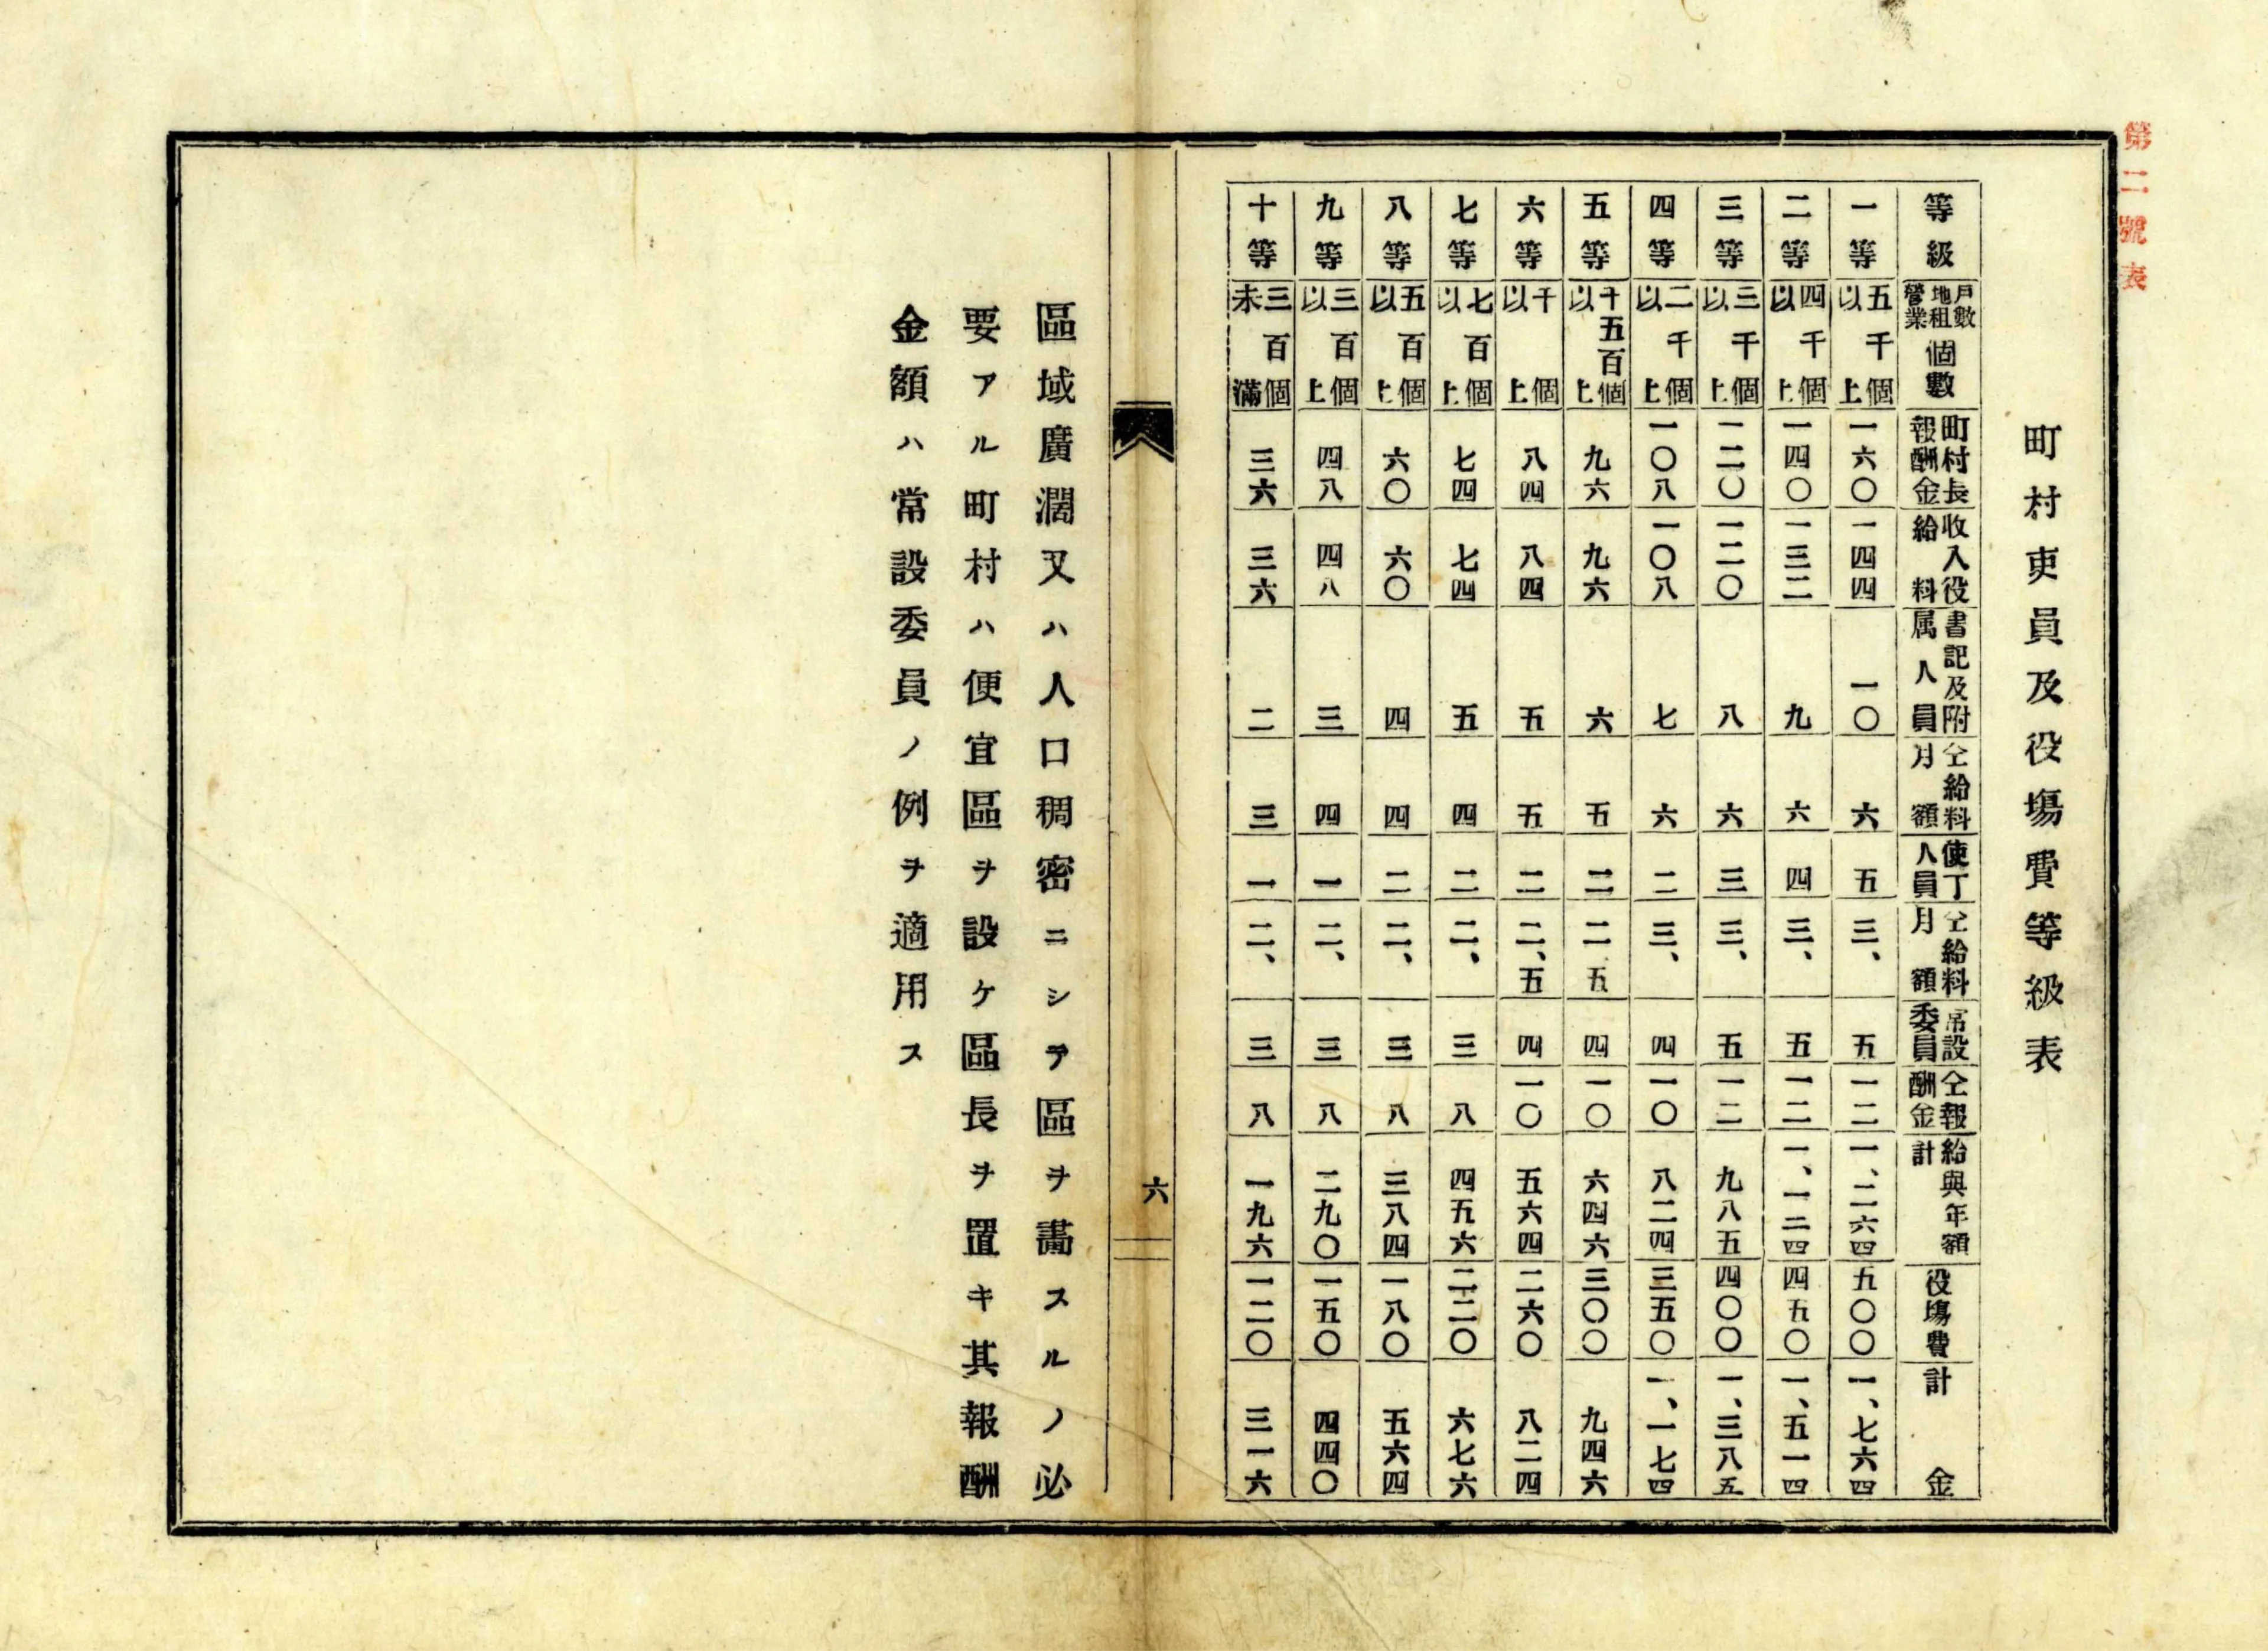 第二號表
町村吏員及役塲費等級表
等級 戶數地租營業個數 町村長報酬金 收入役給料 書記及附属人員 仝給料月額 使丁人員 仝給料月額 常設委員 仝報酬金 給與年額計 役塲費 計金
一等 五千個以上 一六〇 一四四 一〇 六 五 三、 五 一二 一、二六四 五〇〇 一、七六四
二等 四千個以上 一四〇 一三二 九 六 四 三、 五 一二 一、一二四 四五〇 一、五一四
三等 三千個以上 一二〇 一二〇 八 六 三 三、 五 一二 九八五 四〇〇 一、三八五
四等 二千個以上 一〇八 一〇八 七 六 二 三、 四 一〇 八二四 三五〇 一、一七四
五等 千五百個以上 九六 九六 六 五 二 二、五 四 一〇 六四六 三〇〇 九四六
六等 千個以上 八四 八四 五 五 二 二、五 四 一〇 五六四 二六〇 八二四
七等 七百個以上 七四 七四 五 四 二 二、 三 八 四五六 二二〇 六七六
八等 五百個以上 六〇 六〇 四 四 二 二、 三 八 三八四 一八〇 五六四
九等 三百個以上 四八 四八 三 四 一 二、 三 八 二九〇 一五〇 四四〇
十等 三百個未滿 三六 三六 二 三 一 二、 三 八 一九六 一二〇 三一六
六
區域廣濶又ハ人口稠密ニシテ區ヲ畵スルノ必
要アル町村ハ便宜區ヲ設ケ區長ヲ置キ其報酬
金額ハ常設委員ノ例ヲ適用ス